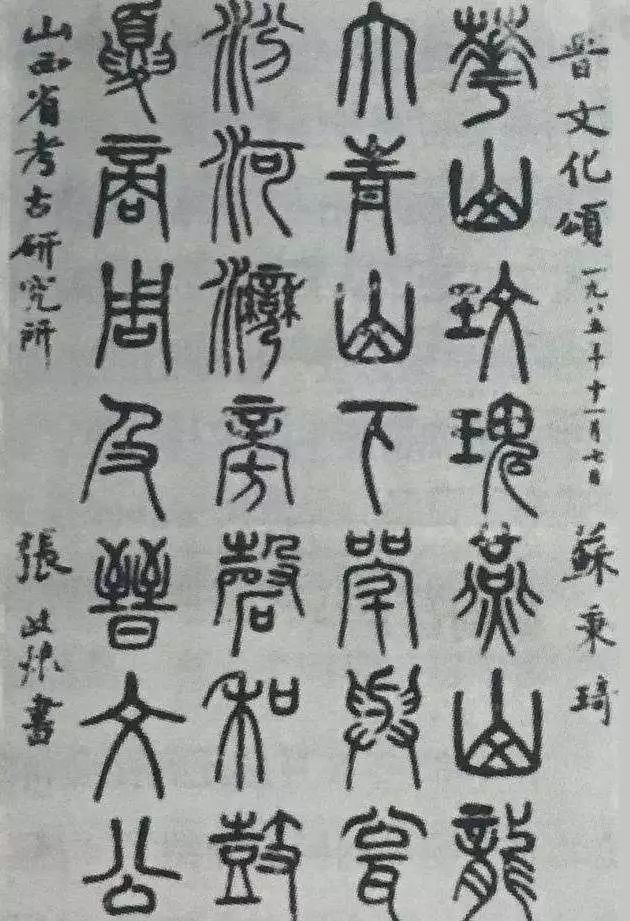 晉文化頌 一九八五年十一月七日 蘇秉琦
華山玫瑰燕山龍
大青山下斝與瓮
汾河灣旁磬和鼓
夏商周及晉文公
山西省考古研究所 張 書